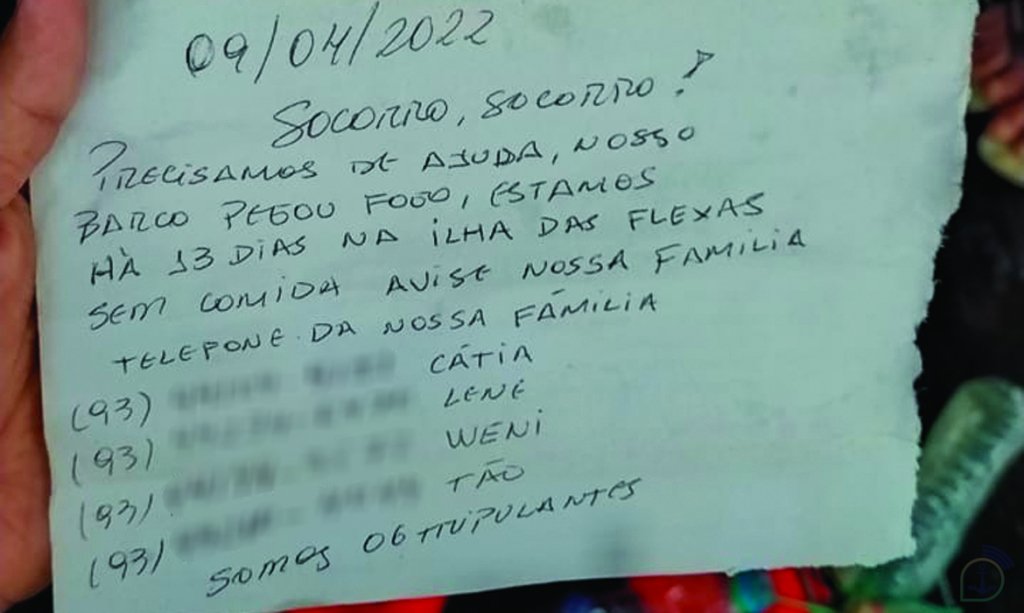 09/04/2022
SOCORRO, SOCORRO!
PRECISAMOS DE AJUDA, NOSSO
BARCO PEGOU FOGO, ESTAMOS
HÀ 13 DIAS NA ILHA DAS FLEXAS
SEM COMIDA AVISE NOSSA FAMILIA
TELEFONE DA NOSSA FÁMILIA
(93) CÁTIA
(93) LENE
(93) WENI
(93) TÃO
SOMOS 06 TTUPULANTES